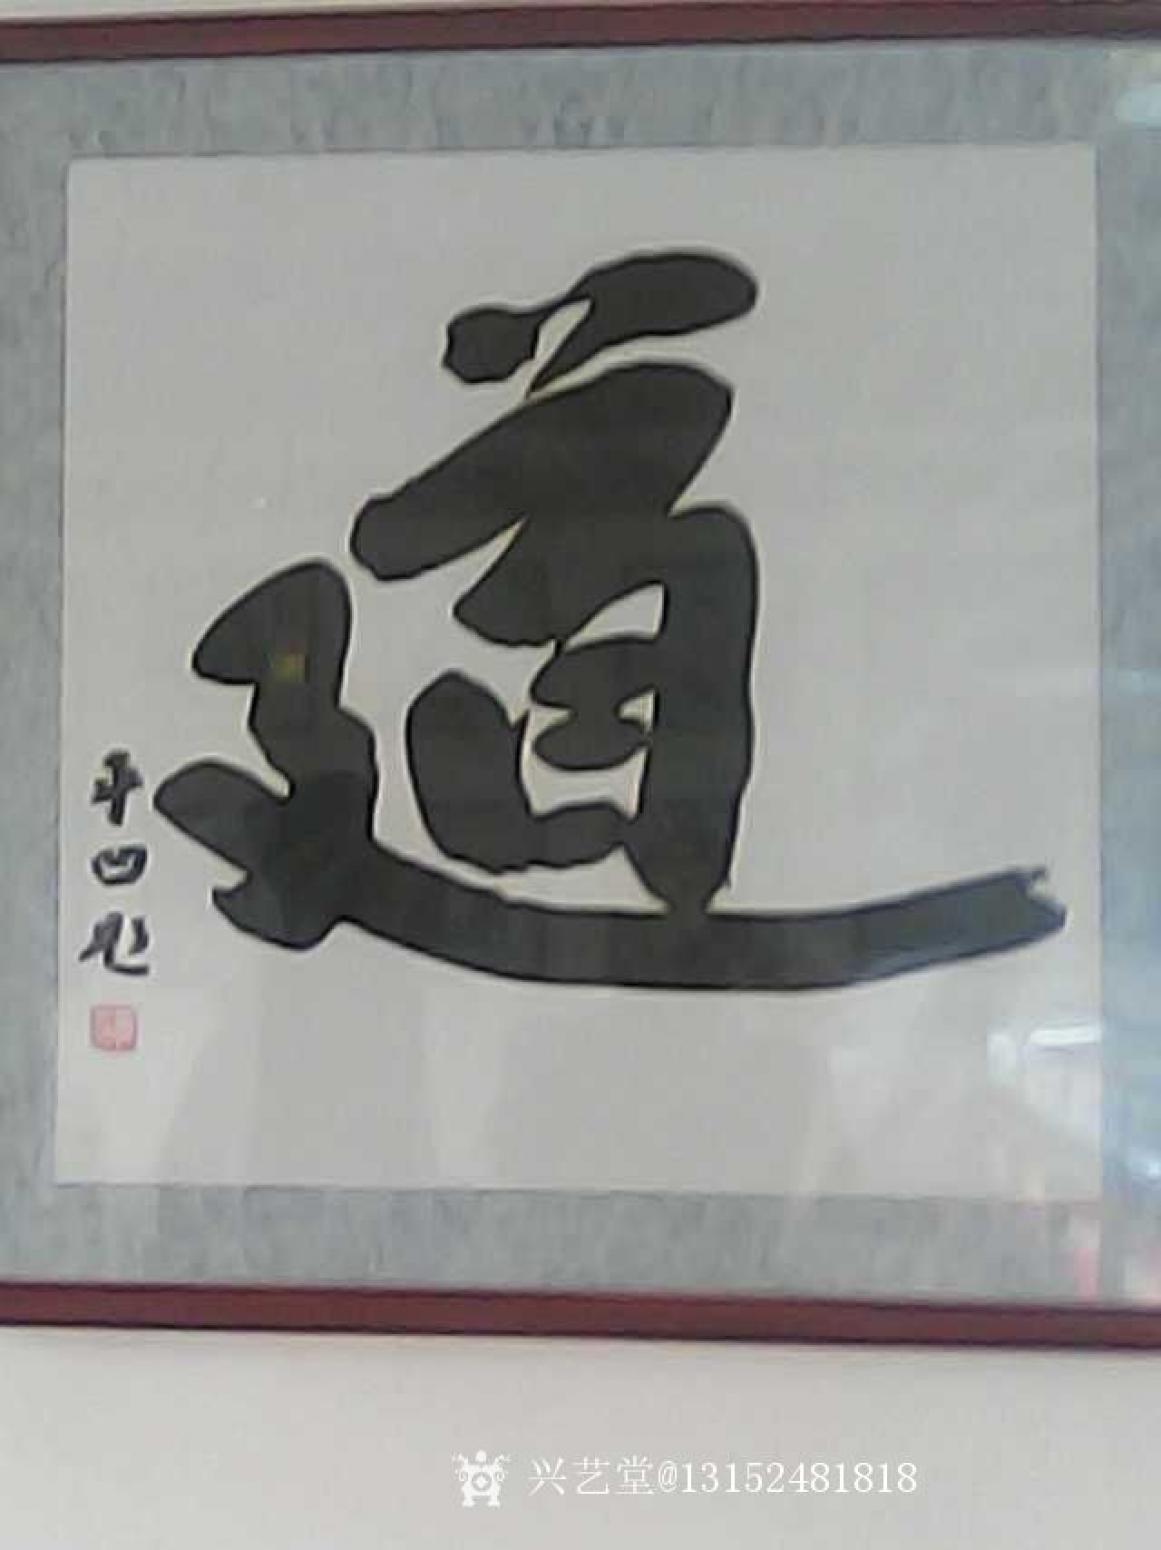 道
平凹
兴艺堂@13152481818